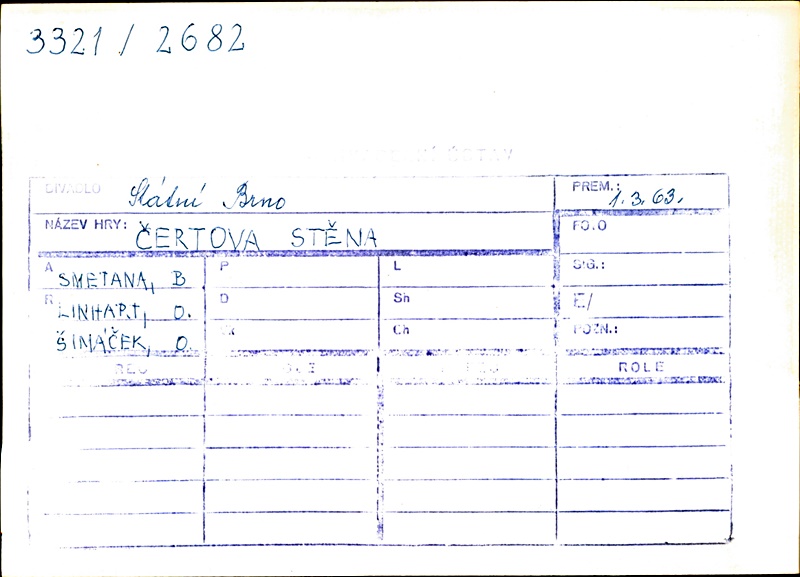 3321 / 2682
ÚSTAV
DIVADLO Státní Brno PREM.: 1.3.63.
NÁZEV HRY: ČERTOVA STĚNA FOTO
A SMETANA, B P L SIG.:
R LINHART, O. D Sh E/
ŠIMÁČEK, O Ch POZN.:
ROLE